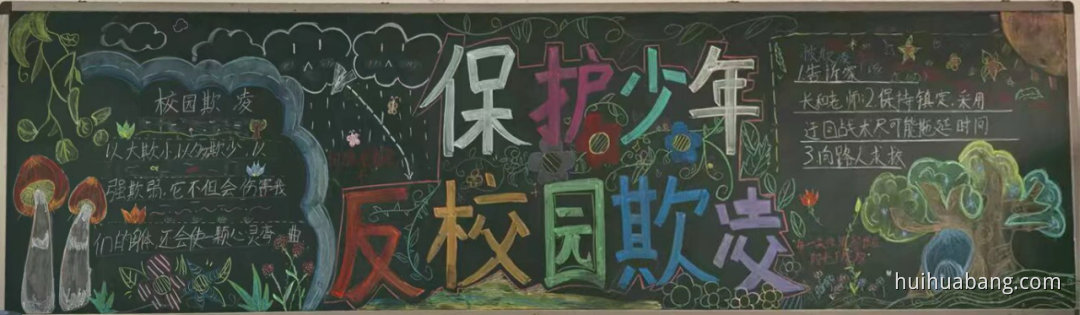 校园欺凌
以大欺小,以多欺少,以
强欺弱.它不但会伤害我
们的身体,还会使一颗心灵弯曲
保护少年
反校园欺凌
1告诉家
长和老师:2.保持镇定.采用
迂回战术尺可能拖延时间
3向路人求救
huihuabang.com